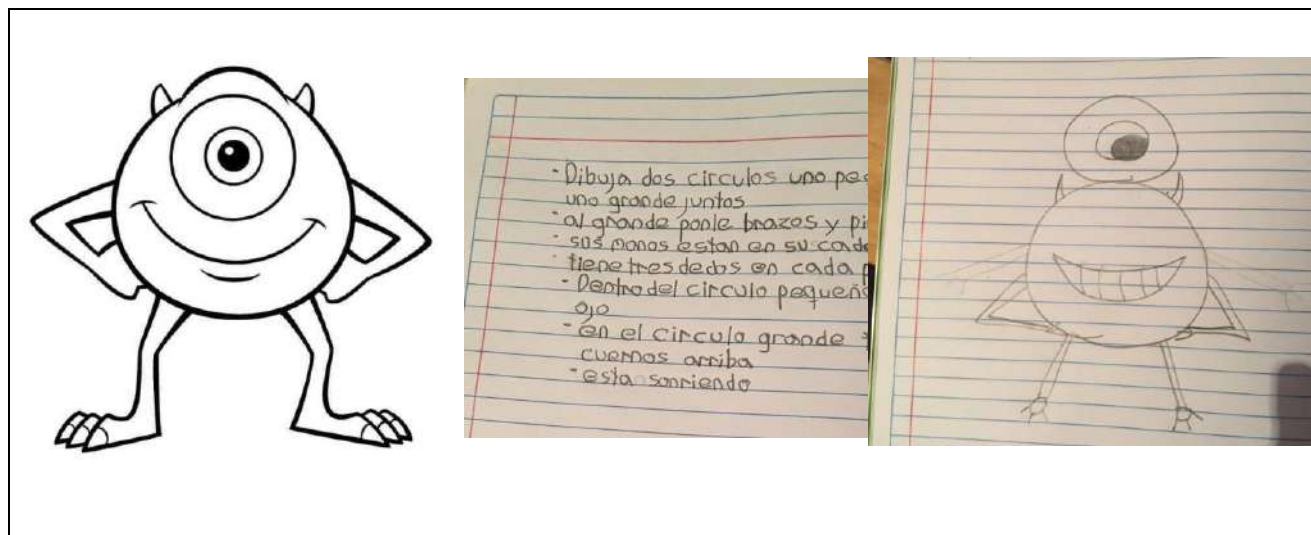 - Dibuja dos circulos uno
uno grande juntos
- al grande ponle brazos y
- sus manos estan en su
- tiene tres dedos en cada
- Dentro del circulo
ojo
- en el circulo grande
cuernos arriba
- esta sonriendo